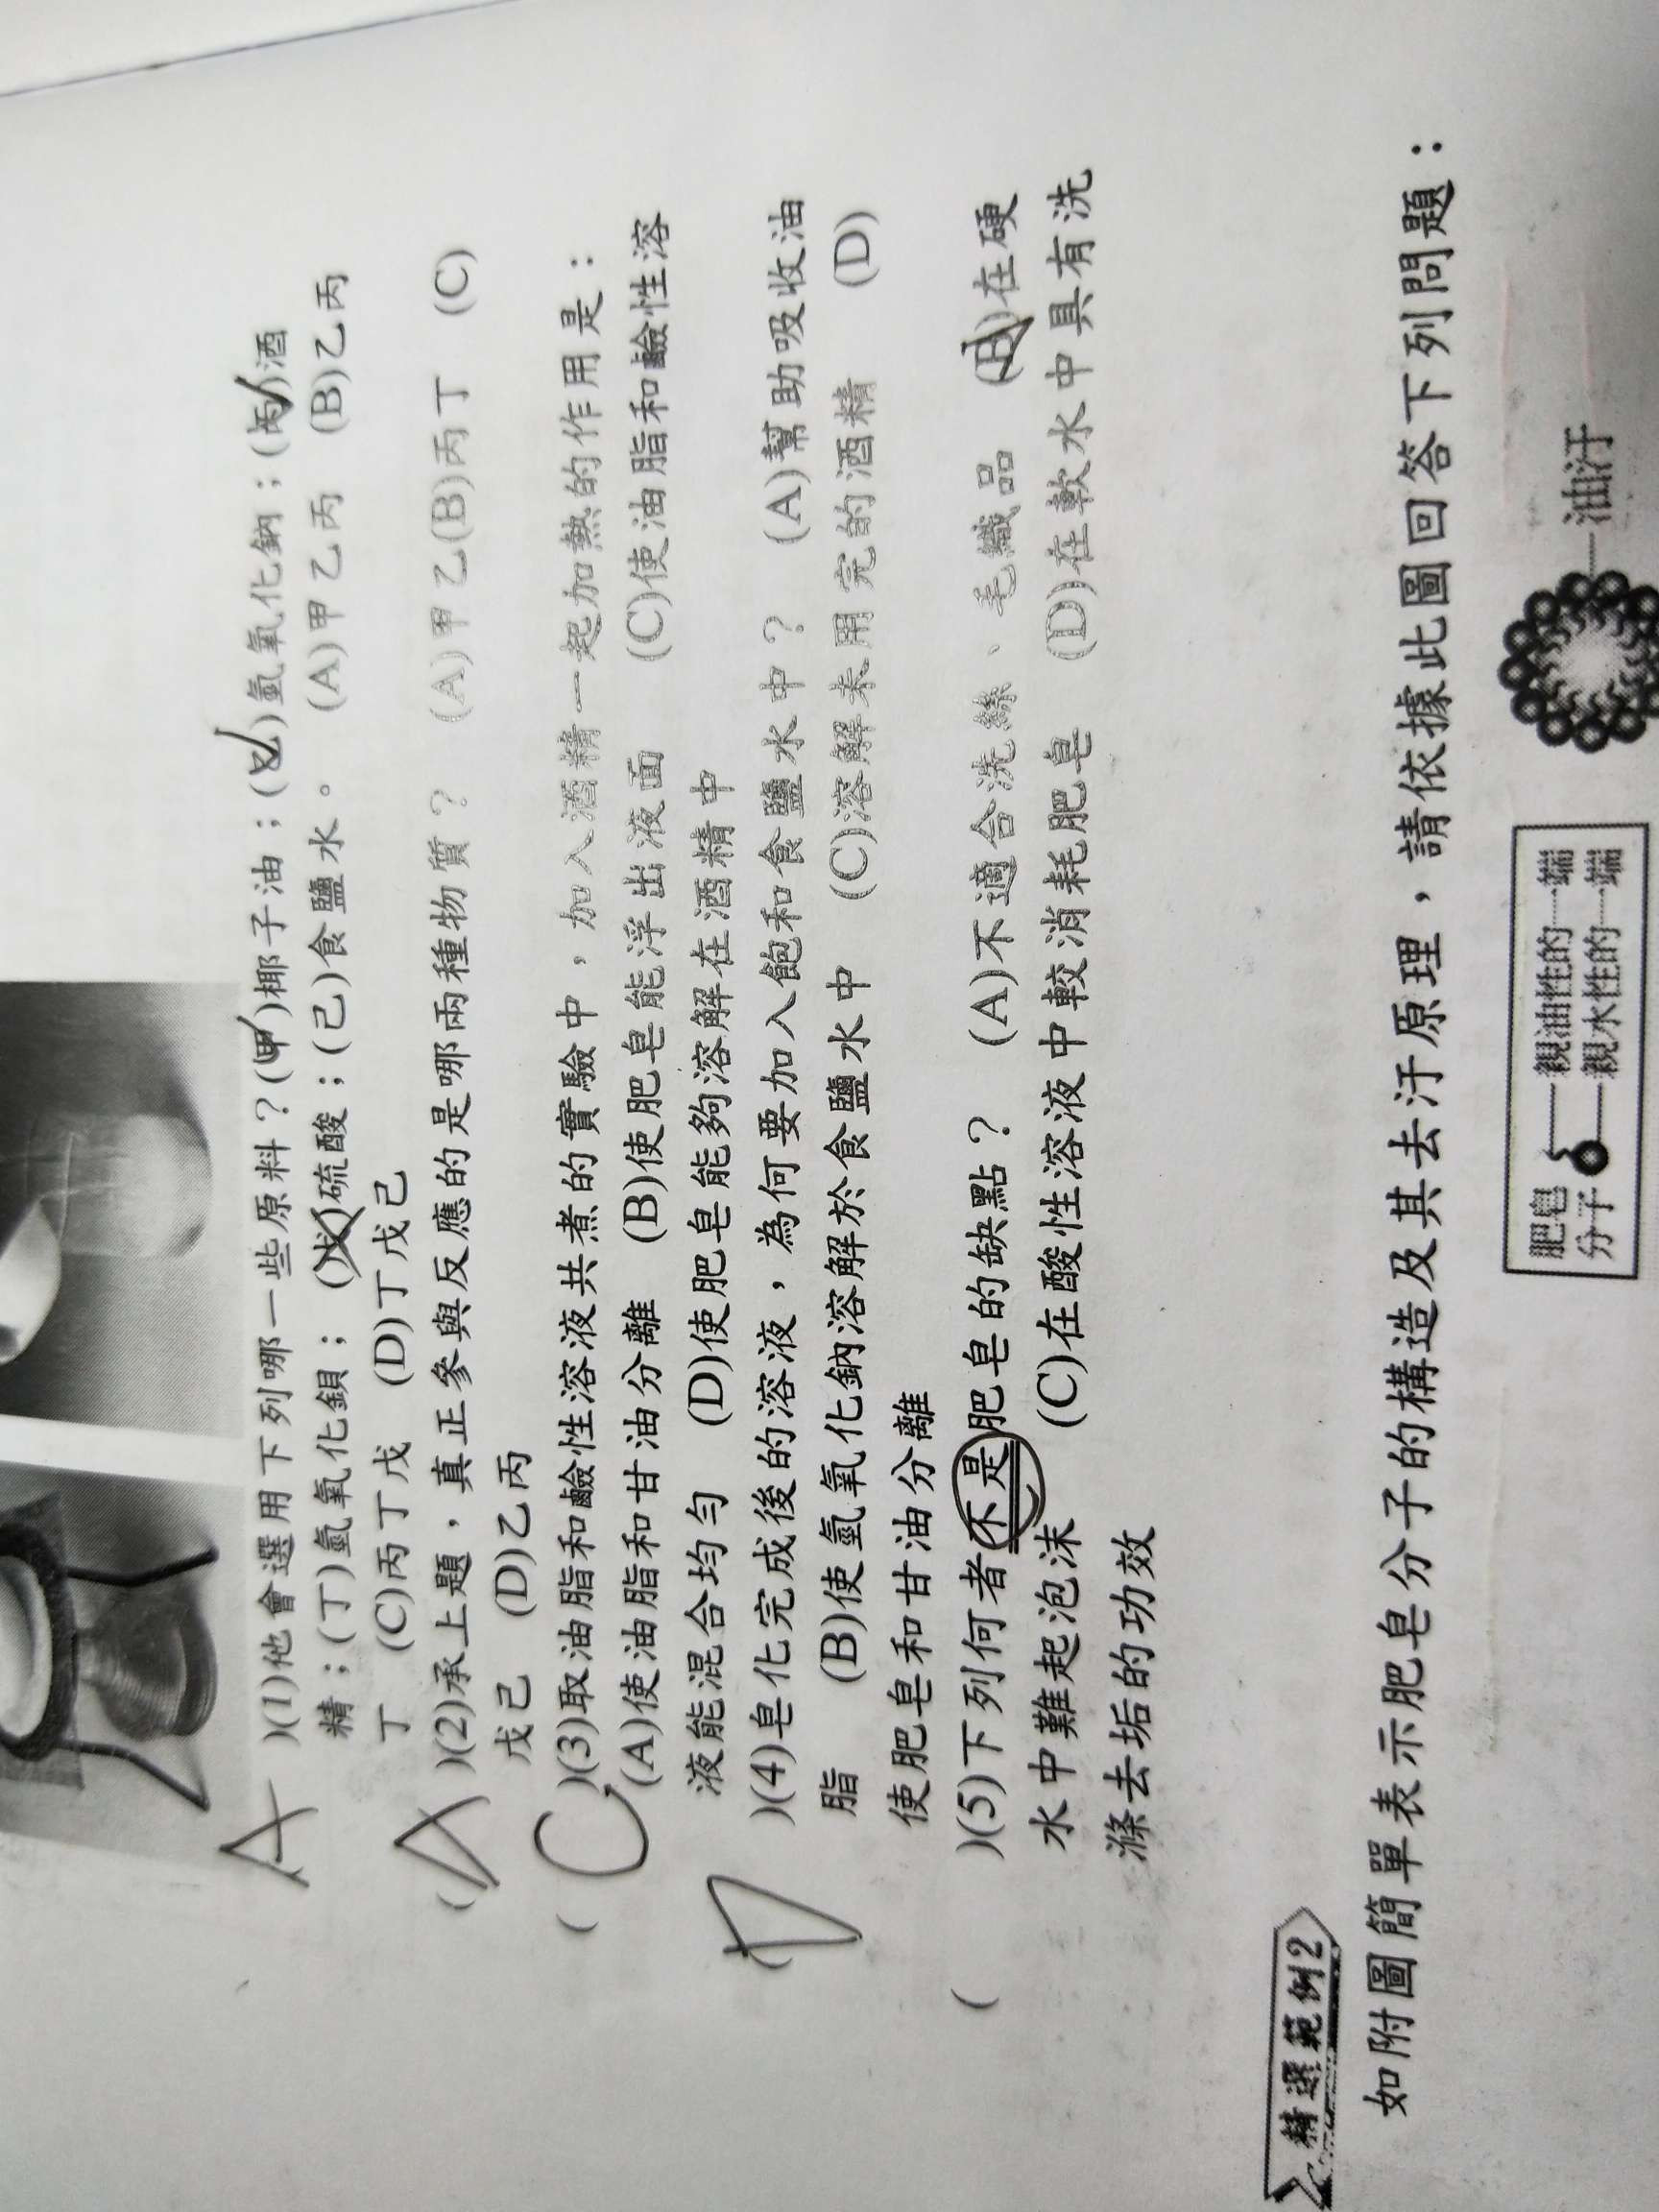 A )(1)他會選用下列哪一些原料？(甲)椰子油；(乙)氫氧化鈉；(丙)酒
精；(丁)氫氧化鋇；(戊)硫酸；(己)食鹽水。 (A)甲乙丙 (B)乙丙
丁 (C)丙丁戊 (D)丁戊己
(A )(2)承上題，真正參與反應的是哪兩種物質？ (A)甲乙(B)丙丁 (C)
戊己 (D)乙丙
( C )(3)取油脂和鹼性溶液共煮的實驗中，加入酒精一起加熱的作用是：
(A)使油脂和甘油分離 (B)使肥皂能浮出液面 (C)使油脂和鹼性溶
液能混合均勻 (D)使肥皂能夠溶解在酒精中
(D )(4)皂化完成後的溶液，為何要加入飽和食鹽水中？ (A)幫助吸收油
脂 (B)使氫氧化鈉溶解於食鹽水中 (C)溶解未用完的酒精 (D)
使肥皂和甘油分離
( )(5)下列何者不是肥皂的缺點？ (A)不適合洗絲、毛織品 (B)在硬
水中難起泡沫 (C)在酸性溶液中較消耗肥皂 (D)在軟水中具有洗
滌去垢的功效
精選範例2
如附圖簡單表示肥皂分子的構造及其去汙原理，請依據此圖回答下列問題：
肥皂
分子
親油性的一端
親水性的一端
油汙